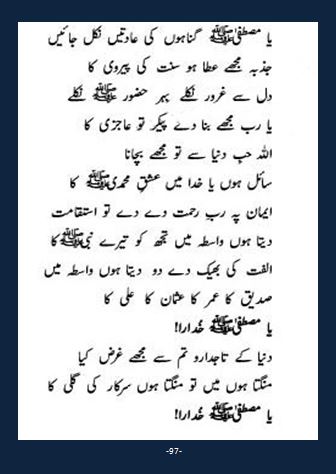 یا مصطفیٰ ﷺ گناہوں کی عادتیں نکل جائیں
جذبہ مجھے عطا ہو سنت کی پیروی کا
دل سے غرور نکلے بہر حضور ﷺ نکلے
یا رب مجھے بنا دے پیکر تو عاجزی کا
اللہ حبِ دنیا سے تو مجھے بچانا
سائل ہوں یا خدا میں عشقِ محمدی ﷺ کا
ایمان پہ ربِ رحمت دے دے تو استقامت
دیتا ہوں واسطہ میں تجھ کو تیرے نبی ﷺ کا
الفت کی بھیک دے دو دیتا ہوں واسطہ میں
صدیق کا عمر کا عثمان کا علی کا
یا مصطفیٰ ﷺ خُدارا!
دنیا کے تاجدارو تم سے مجھے غرض کیا
منگتا ہوں میں تو منگتا ہوں سرکار کی گلی کا
یا مصطفیٰ ﷺ خُدارا!
-97-